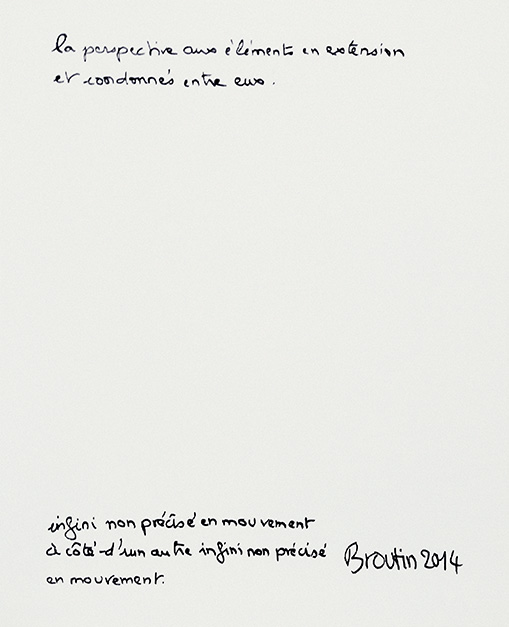 la perspective aux éléments en extension
et coordonnés entre eux.
infini non précisé en mouvement
à côté d'un autre infini non précisé
en mouvement.
Broutin 2014